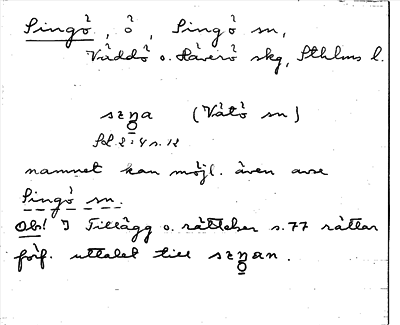 Singö, ö, Singö sn,
Väddö o. Häverö skg, Sthlms l.
szŋa (Vätö sn)
Sd. 2:4 s. 12
namnet kan möjl. även avse
Singö sn.
Obs! I Tillägg o. rättelser s. 77 rättar
förf. uttalet till szŋan.